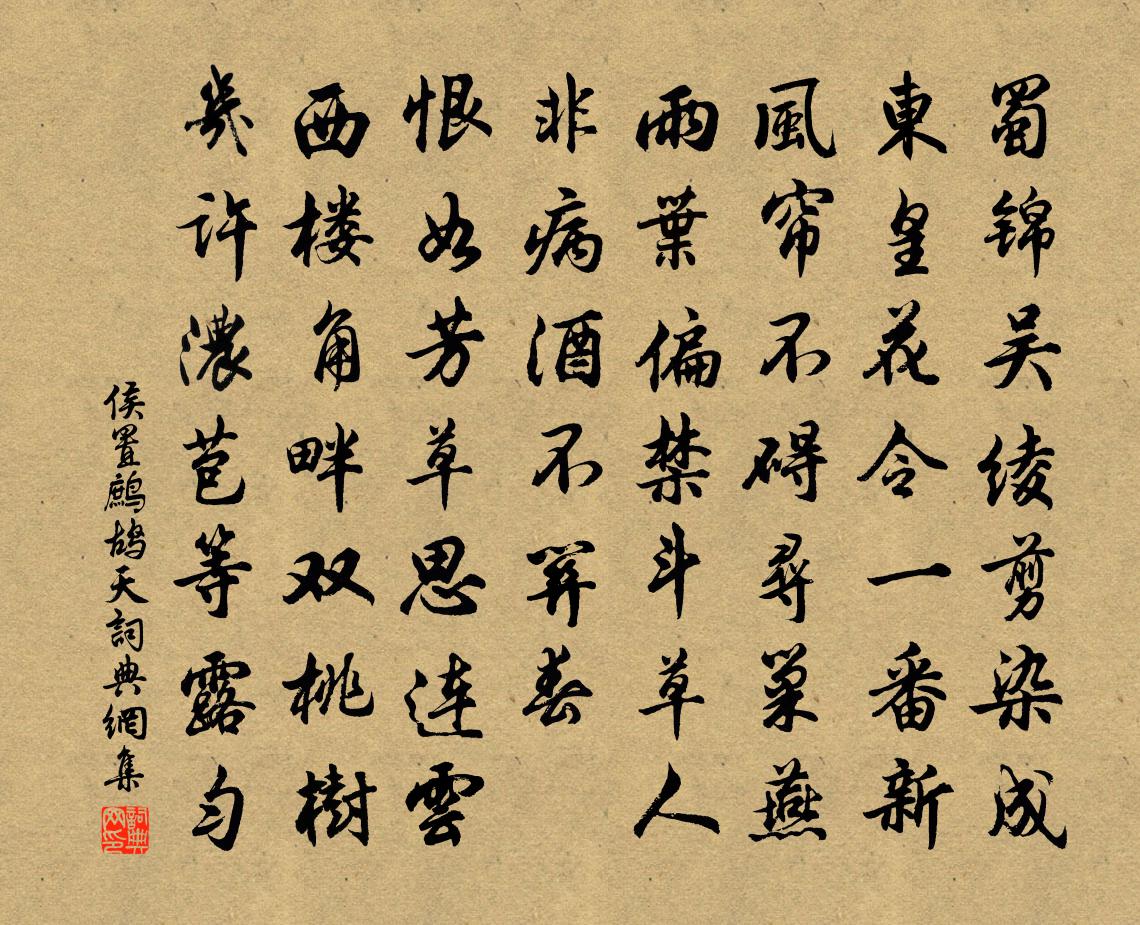 蜀锦吴绫剪染成
東皇花令一番新
風帘不碍尋巢燕
雨葉偏禁斗草人
非病酒不关春
恨如芳草思連雲
西楼角畔双桃樹
幾許濃苞等露匀
侯置鷓鸪天詞典網集
詞典网印